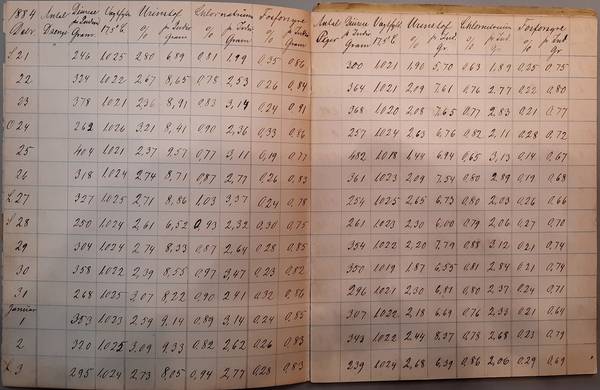 1884 Antal Diurese Vægtfylde Urinstof Chlornatrium Fosforsyre Antal Diurese Vægtfylde Urinstof Chlornatrium Fosforsyre
Gram 17.5° C. % Gram % Gram % Gram Piger Gram 17.5° C. % Gr % Gr % Gr
21 246 1025 2,80 6,89 0,81 1,99 0,35 0,86 300 1021 1,90 5,70 0,63 1,89 0,25 0,75
22 324 1022 2,67 8,65 0,78 2,53 0,26 0,84 364 1021 2,09 7,61 0,76 2,77 0,22 0,80
23 378 1021 2,36 8,91 0,83 3,14 0,24 0,91 368 1020 2,08 7,65 0,77 2,83 0,21 0,77
24 262 1026 3,21 8,41 0,90 2,36 0,33 0,86 257 1024 2,63 6,76 0,82 2,11 0,28 0,72
25 404 1021 2,37 9,57 0,77 3,11 0,19 0,77 482 1018 1,44 6,94 0,65 3,13 0,14 0,67
26 318 1024 2,74 8,71 0,87 2,77 0,26 0,83 361 1023 2,09 7,54 0,80 2,89 0,19 0,68
27 327 1025 2,71 8,86 1,03 3,37 0,24 0,78 254 1025 2,65 6,73 0,80 2,03 0,26 0,66
28 250 1024 2,61 6,52 0,93 2,32 0,30 0,75 261 1023 2,30 6,00 0,79 2,06 0,27 0,70
29 304 1024 2,74 8,33 0,87 2,64 0,28 0,85 354 1022 2,20 7,79 0,88 3,12 0,21 0,74
30 358 1022 2,39 8,55 0,97 3,47 0,23 0,82 350 1019 1,87 6,55 0,81 2,84 0,21 0,74
31 268 1025 3,07 8,22 0,90 2,41 0,32 0,86 296 1021 2,30 6,81 0,80 2,37 0,24 0,71
Januar
1 353 1023 2,59 9,14 0,89 3,14 0,24 0,85 307 1022 2,18 6,69 0,76 2,33 0,21 0,64
2 320 1025 3,09 9,33 0,82 2,62 0,26 0,83 343 1022 2,44 8,37 0,78 2,68 0,23 0,79
3 295 1024 2,73 8,05 0,94 2,77 0,28 0,83 239 1024 2,68 6,39 0,86 2,06 0,29 0,69